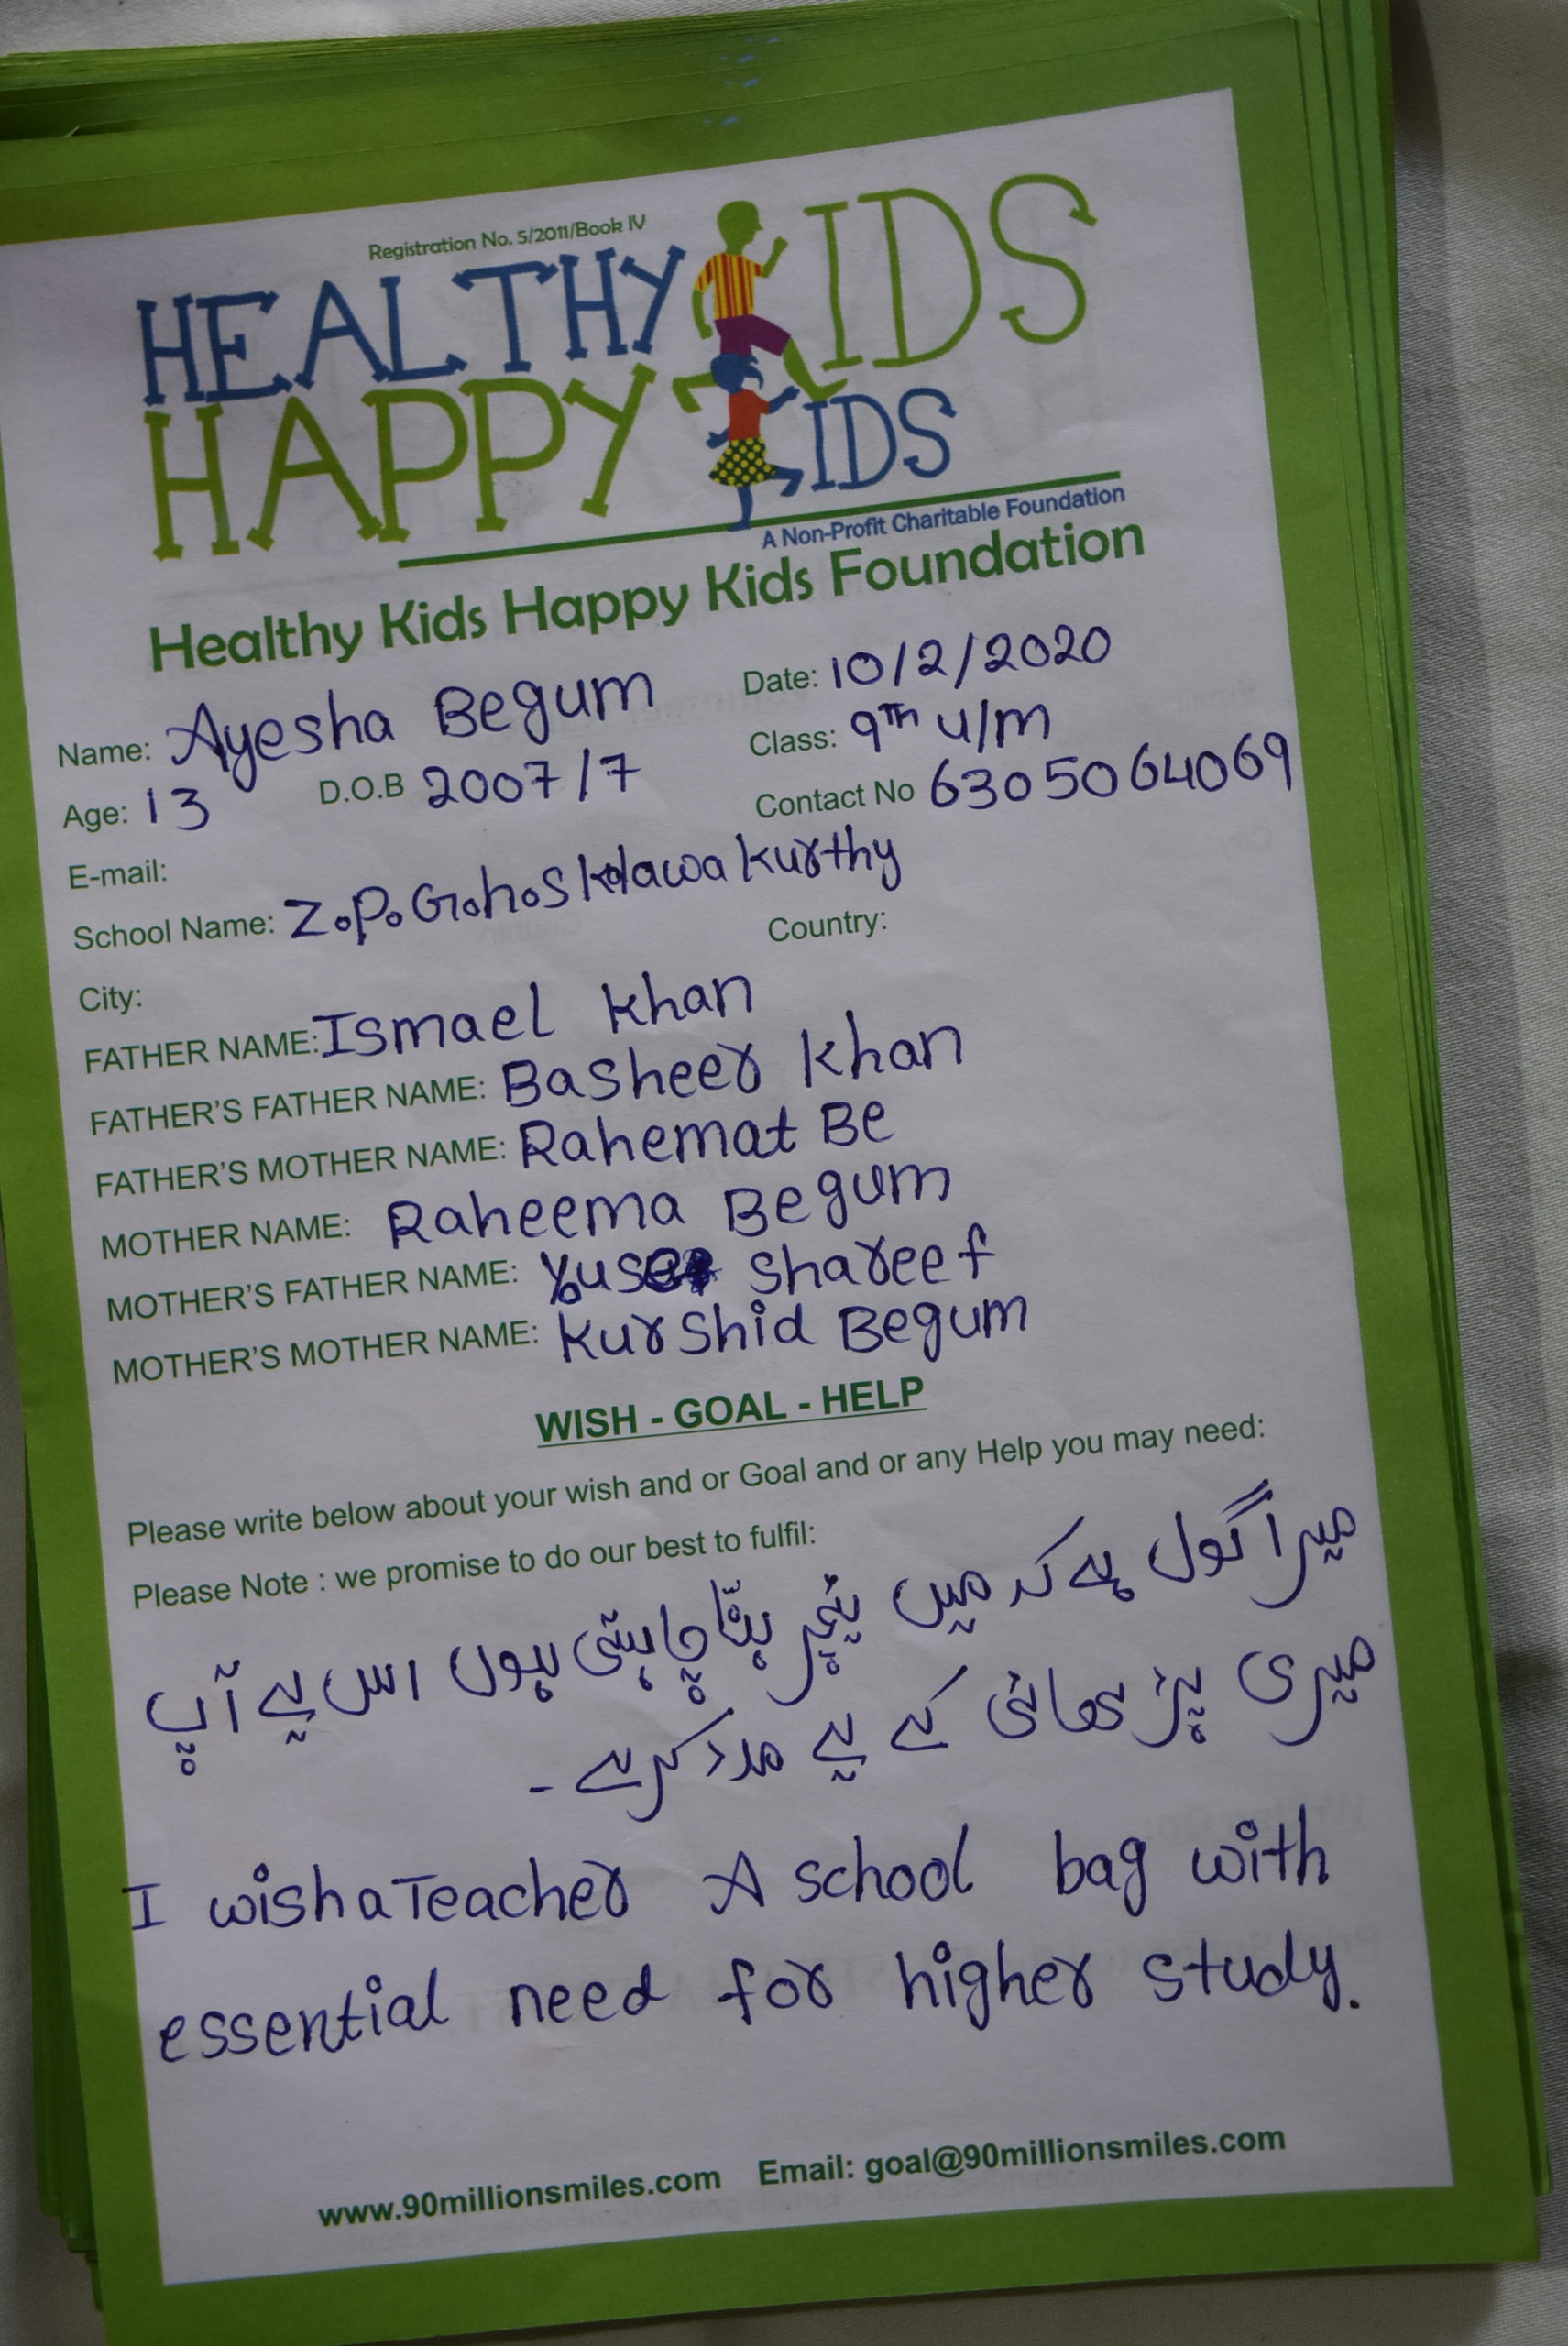 Registration No. 5/2011/Book IV
HEALTHY KIDS
HAPPY KIDS
A Non-Profit Charitable Foundation
Healthy Kids Happy Kids Foundation
Name: Ayesha Begum Date: 10/2/2020
Age: 13 D.O.B 2007/7 Class: 9Th U/m
E-mail: Contact No 6305064069
School Name: Z.P.G.h.S kurthy
City: Country:
FATHER NAME: Ismael Khan
FATHER'S FATHER NAME: Basheer Khan
FATHER'S MOTHER NAME: Rahemat Be
MOTHER NAME: Raheema Begum
MOTHER'S FATHER NAME: Shareef
MOTHER'S MOTHER NAME: Kurshid Begum
WISH - GOAL - HELP
Please write below about your wish and or Goal and or any Help you may need:
Please Note : we promise to do our best to fulfil:
میرا گول ہے کہ میں ٹیچر بننا چاہتی ہوں اس لیے آپ
میری پڑھائی کے لیے مدد کریے ۔
I wish a Teacher A school bag with
essential need for higher study.
www.90millionsmiles.com Email: goal@90millionsmiles.com